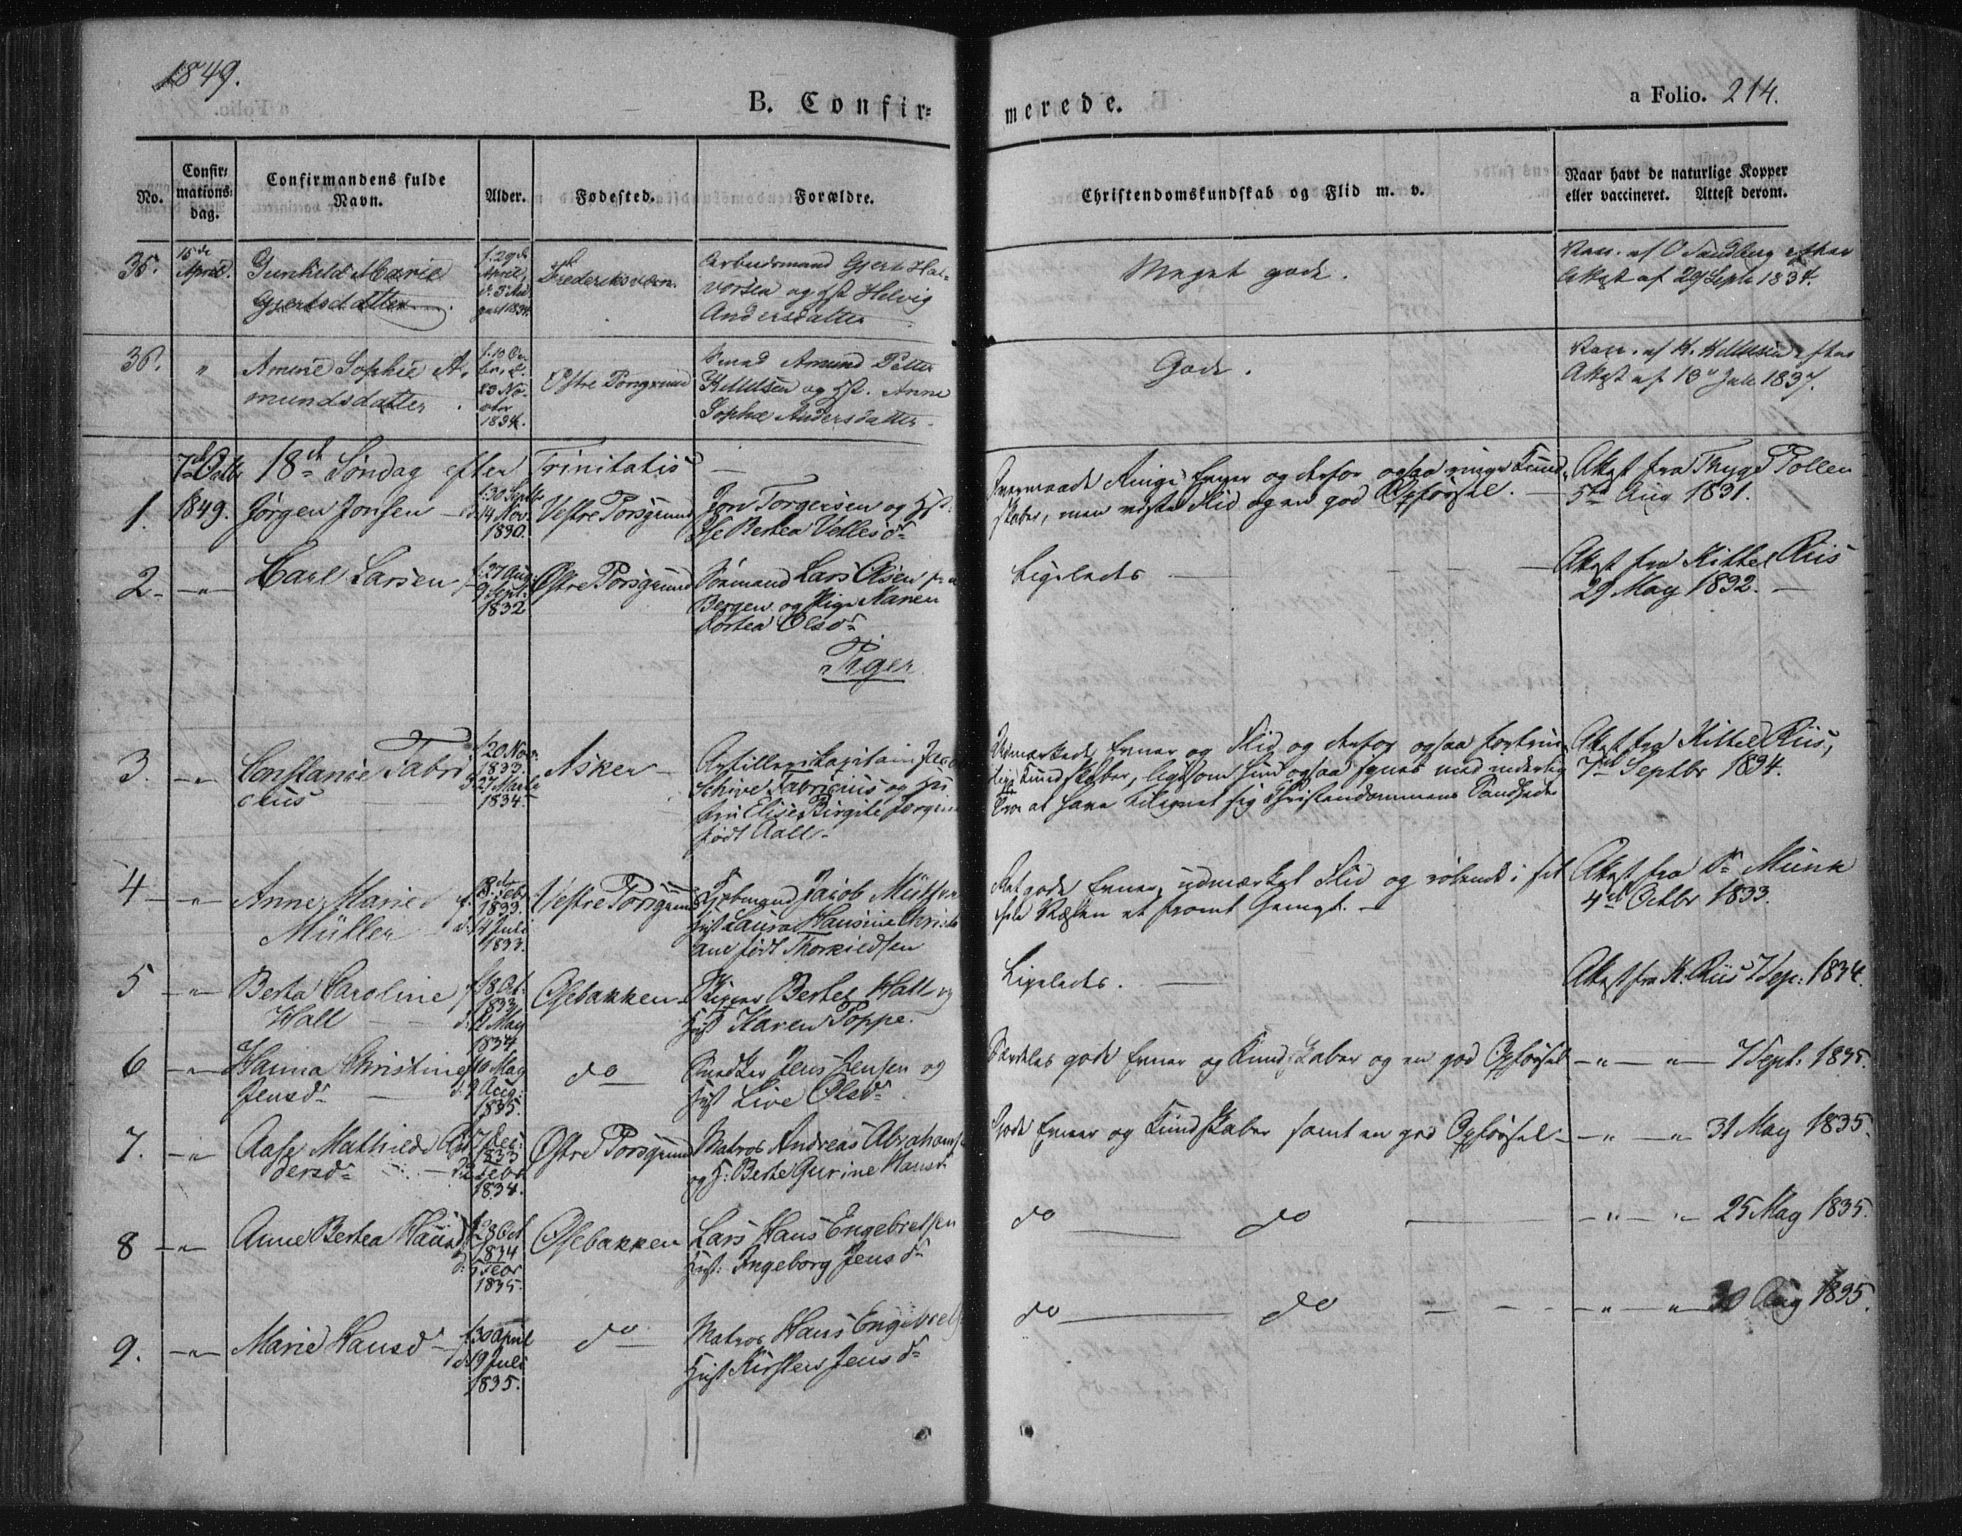 1849.
B. Confir=
merede.
a Folio. 214.
No.
Confir-
mations-
dag.
Confirmandens fulde
Navn.
Alder.
Fødested.
Forældre.
Christendomskundskab og Flid m. v.
Naar havt de naturlige Kopper
eller vaccineret. Attest derom.
35.
15de
April.
Gunhild Marie
Gjertsdatter
f. 29de
April,
1834.
Frederiksværn.
Arbeidsmand Gjert Hal-
vorsen og Hst Helvig
Andersdatter
Meget gode.
Vacc. af O Sandberg efter
Attest af 29 Septr 1834.
36.
"
Amine Sophie A-
mundsdatter
f. 10
23 No-
vbr
1834.
Østre Porsgrund
Amund Petter
Kittelsen og Hst. Anne
Sophie Andersdatter
Gode.
Vacc. af H. Kittelsen efter
Attest af 10 Juli 1837.
7de Octbr 18de Søndag efter Trinitatis
1.
1849.
Jørgen Jonsen
f. 30 Septbr
d. 14 Nov.
1830.
Vestre Porsgrund
Jon Torgersen og Hst.
Berthea Vetlesdr
Ringe Evner og derfor ogsaa ringe Kund-
skaber, men Flid og en god Opførsel.
Attest fra Thyge Pollen
5te Aug 1831.
2.
"
Carl Larsen
f. 27 Aug.
9 Sept.
1832
Østre Porsgrund
Sømand Lars Olsen fra
Bergen og Pige Maren
Dortea Olsdr
Ligeledes
Attest fra Kittel Riis
29 May 1832.
Piger
3.
"
Constance Fabri
cius
f. 20 Nov.
1833.
d. 24 Marts
1834.
Asker
Artillerikapitain Jacob
Schive Fabricius og Hu
stru Elise Birgite Jørgine
født Aall.
Udmærkede Evner og Flid og derfor ogsaa fortrin-
lige Kundskaber, ligesom hun ogsaa synes med inderlig
Tro at have tilegnet sig Christendommens Sandheder
Attest fra Kittel Riis,
7de Septbr 1834.
4
"
Anne Marie
Müller
f. 8de Febr
1833.
d. Juli
1833.
Vestre Porsgrund
Kjøbmand Jacob Müller
Hust Laura Hansine Christi
ane født Thorkildsen
Ret gode Evner, udmærket Flid og røbende i sit
hele Væsen et fromt Sempt.
Attest fra Dr Munk
4de Octbr 1833.
5
"
Berta Caroline
Hall
f. 8 Oct.
1833
d. 11 May
1834
Osebakken
Bertel Hall og
Hust Karen Poppe.
Ligeledes.
Attest fra K. Riis 7 Sep: 1834.
6
"
Hanna Christine
Jensdr
f. 10 May
d. 9 Aug.
1835.
do
Snedker Jens Jensen og
Hust Live Olsdr
Særdeles gode Evner og Kundskaber og en god Opførsel
" " 7 Sept. 1835.
7.
"
Aase Mathilde An
dersdr
1833
Febr
1834.
Østre Porsgrund
Matros Andreas Abrahams
og H: Berte Gurine Hansdr
Gode Evner og Kundskaber samt en god Opførsel
" " 31 May 1835.
8
"
Anne Bertea Hansd
f. 28 Oct
1834
d. 5 Febr
1835.
Osebakken
Lars Hans Engebretsen
Hust: Ingeborg Jensdr
do do
" " 25 May 1835.
9.
"
Marie Hansd
f. 30 April
d. 19 Juli
1835.
do
Matros Hans Engebrets
Hust Kirsten Jensdr
do do
" " 30 Aug 1835.